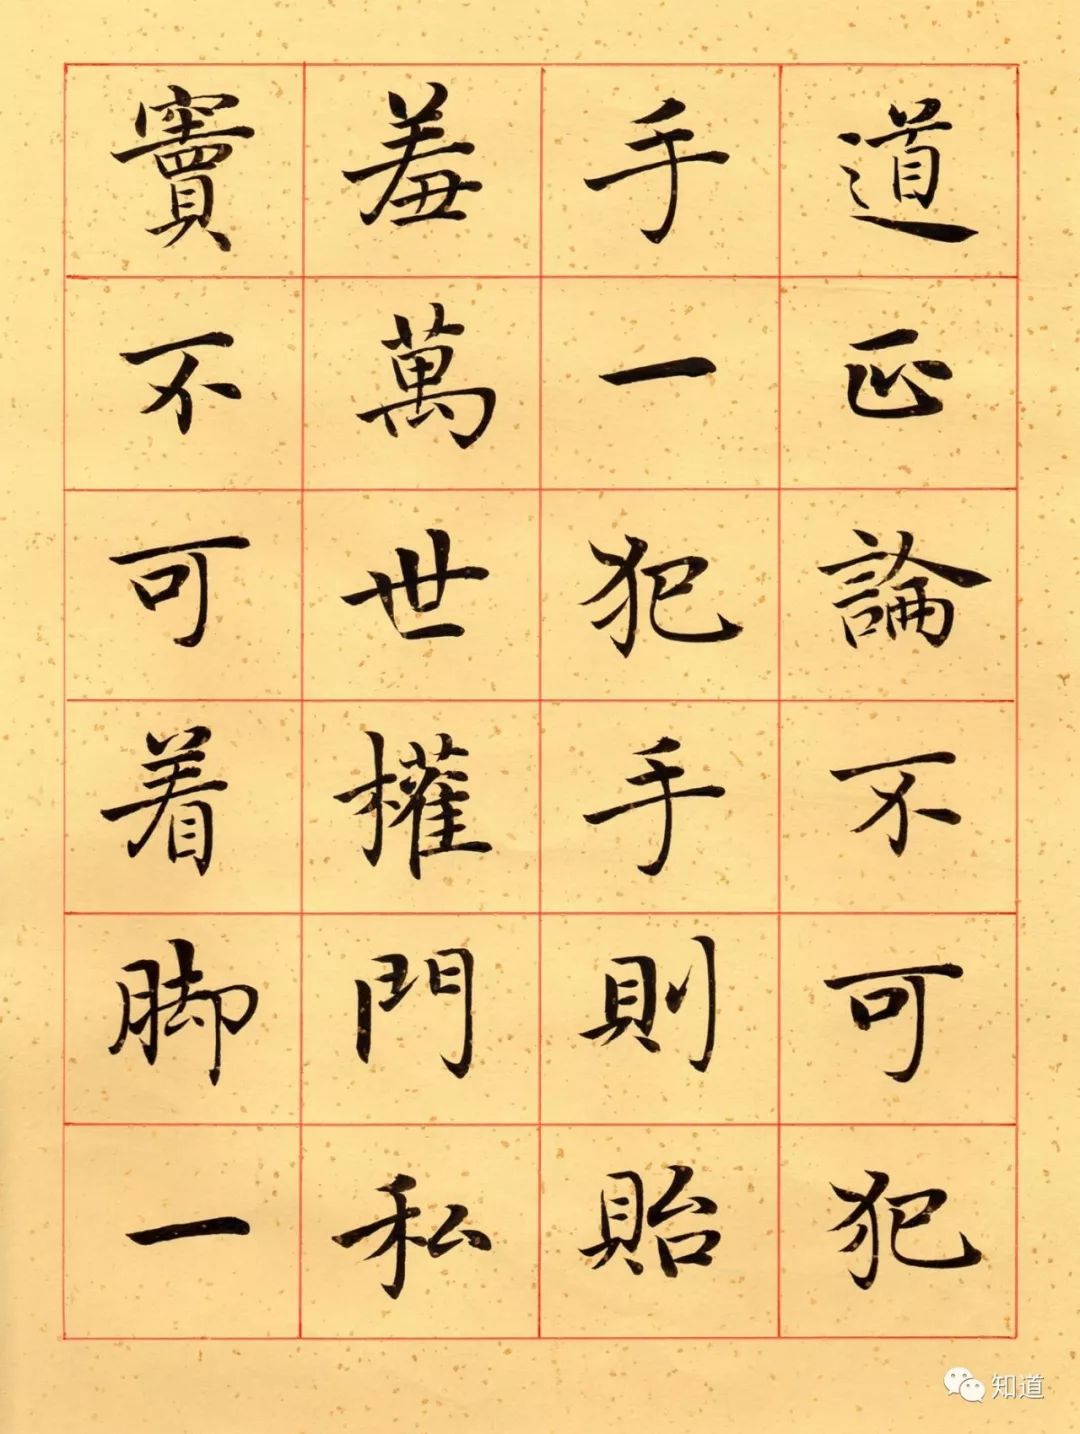 道正論不可犯
手一犯手則貽
羞萬世權門私
竇不可着脚一
知道